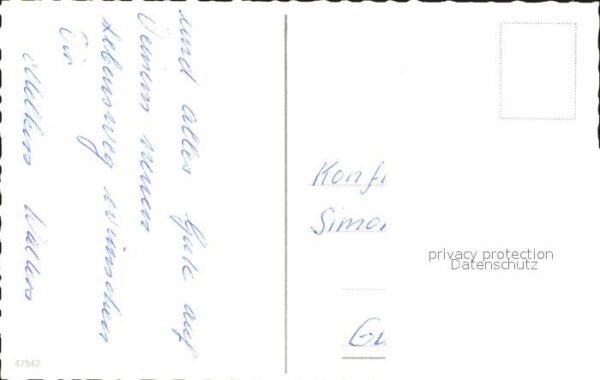 und alles Gute auf
Deinem neuen
Lebensweg wünschen
Dir
Wilhelm Walters
Konfi
Simon
Gu
privacy protection
Datenschutz
47542